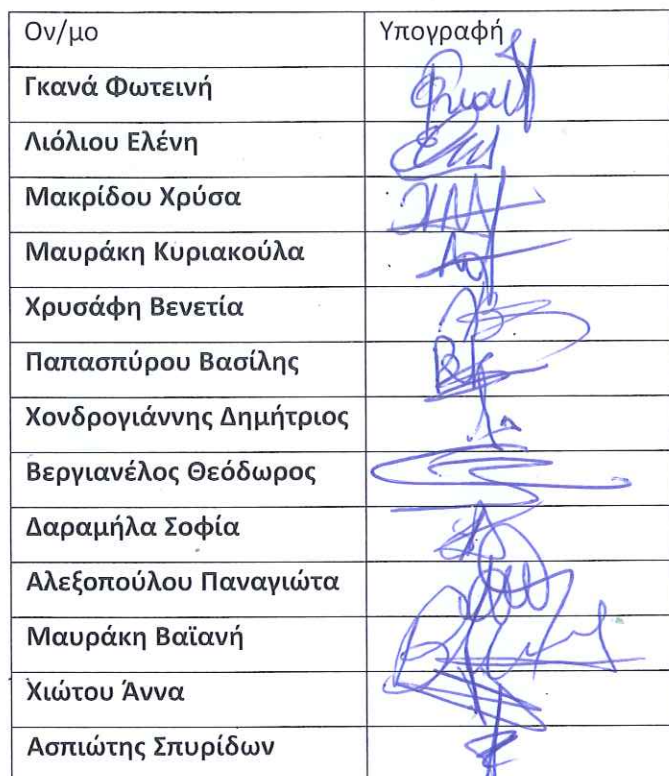 Ον/μο Υπογραφή
Γκανά Φωτεινή
Λιόλιου Ελένη
Μακρίδου Χρύσα
Μαυράκη Κυριακούλα
Χρυσάφη Βενετία
Παπασπύρου Βασίλης
Χονδρογιάννης Δημήτριος
Βεργιανέλος Θεόδωρος
Δαραμήλα Σοφία
Αλεξοπούλου Παναγιώτα
Μαυράκη Βαϊανή
Χιώτου Άννα
Ασπιώτης Σπυρίδων